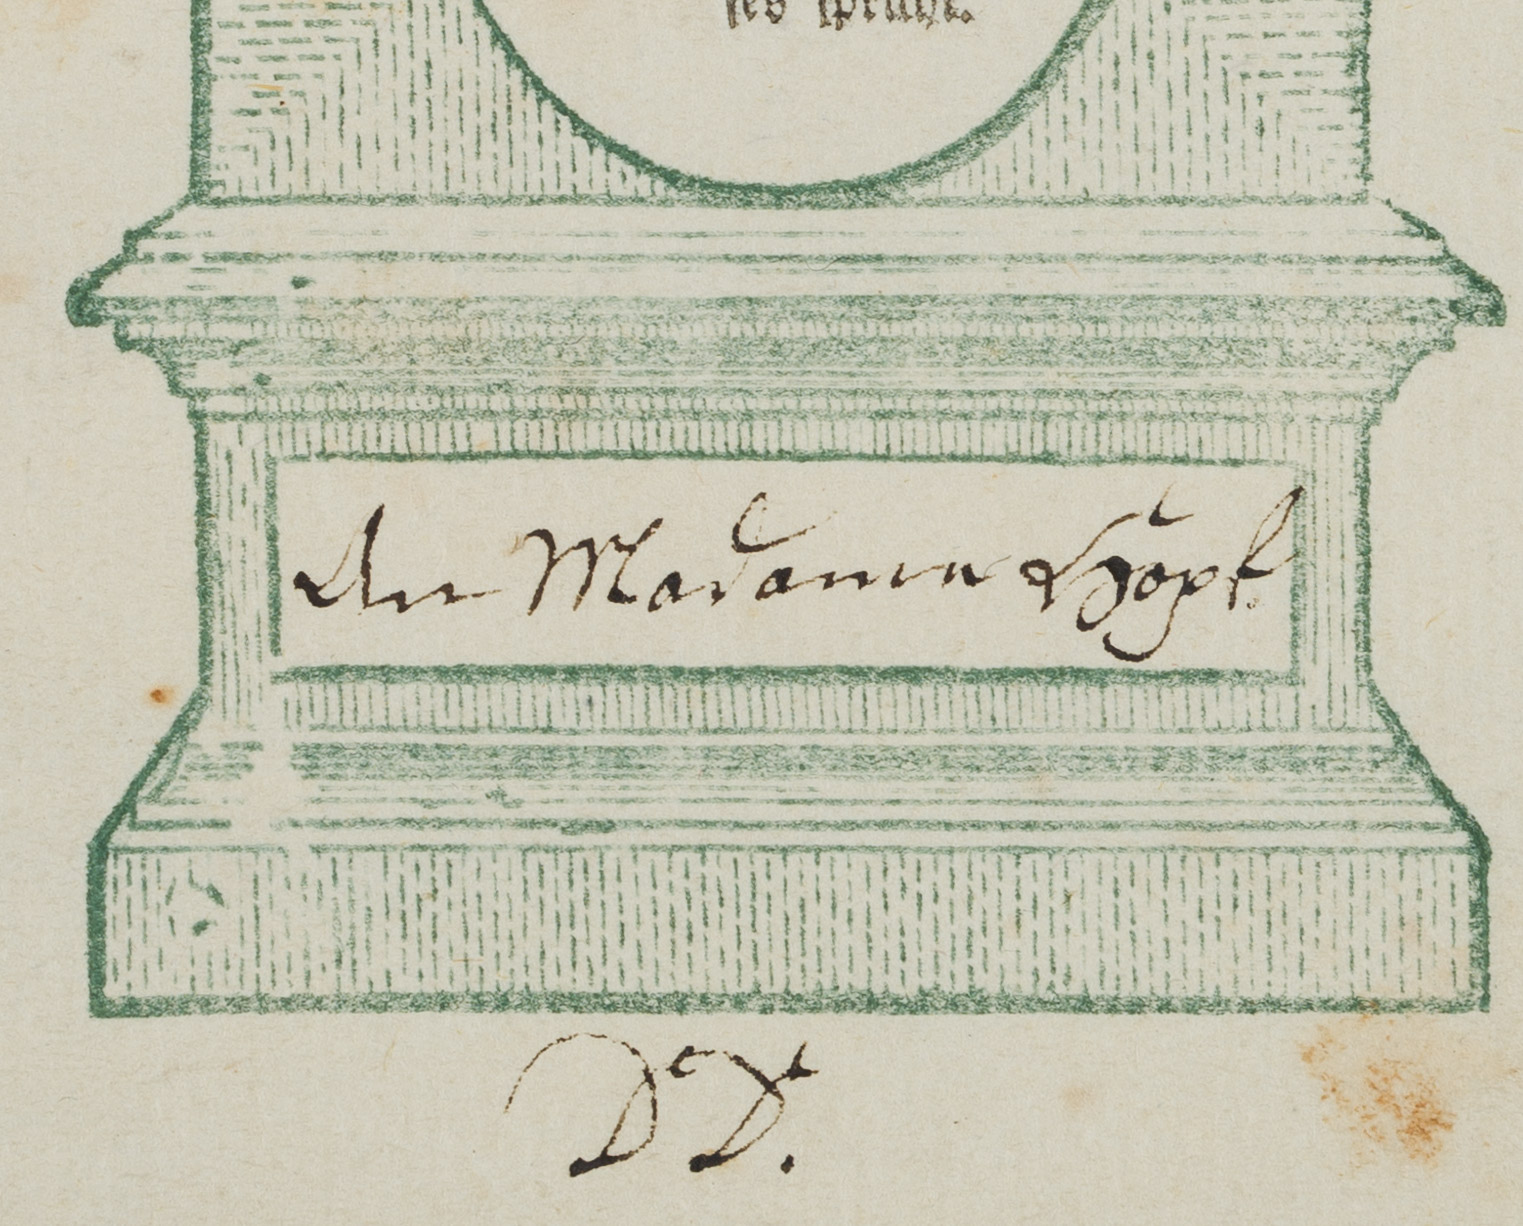 ſes ſpricht.
An Madame Hopf.
D D.